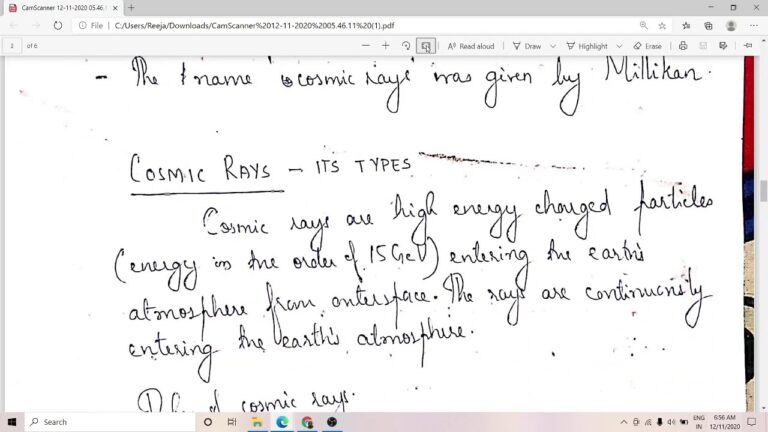 CamScanner 12-11-2020 05.46.
File
C:/Users/Reeja/Downloads/CamScanner%2012-11-2020%2005.46.11%20(1).pdf
of 6
Read aloud
Draw
Highlight
Erase
- The name cosmic rays' was given by Millikan.
COSMIC RAYS - ITS TYPES
Cosmic rays are high energy charged particles
(energy in the order of 15GeV) entering the earth's
atmosphere from outerspace. The rays are continuously
entering the earth's atmosphere.
of cosmic rays.
Search
ENG
6:56 AM
IN
12/11/2020